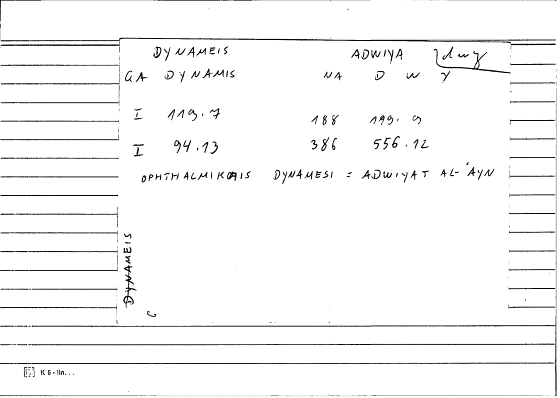 DYNAMEIS ADWIYA dwy
GA DYNAMIS NA D W Y
I 119.7 188 199.9
I 94.13 386 556.12
OPHTHALMIKAIS DYNAMESI = ADWIYAT AL-ʿAYN
DYNAMEIS